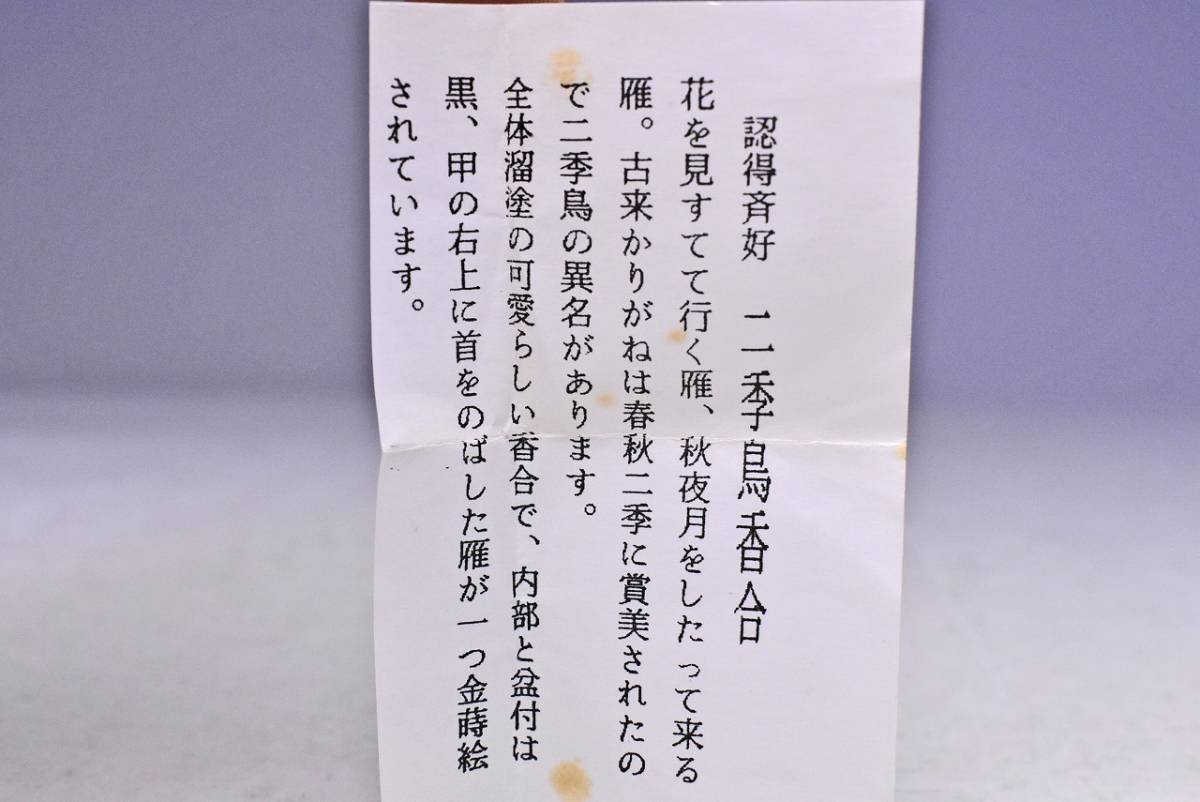 認得斉好　二季鳥香合
花を見すてて行く雁、秋夜月をしたって来る
雁。古来かりがねは春秋二季に賞美されたの
で二季鳥の異名があります。
全体溜塗の可愛らしい香合で、内部と盆付は
黒、甲の右上に首をのばした雁が一つ金蒔絵
されています。